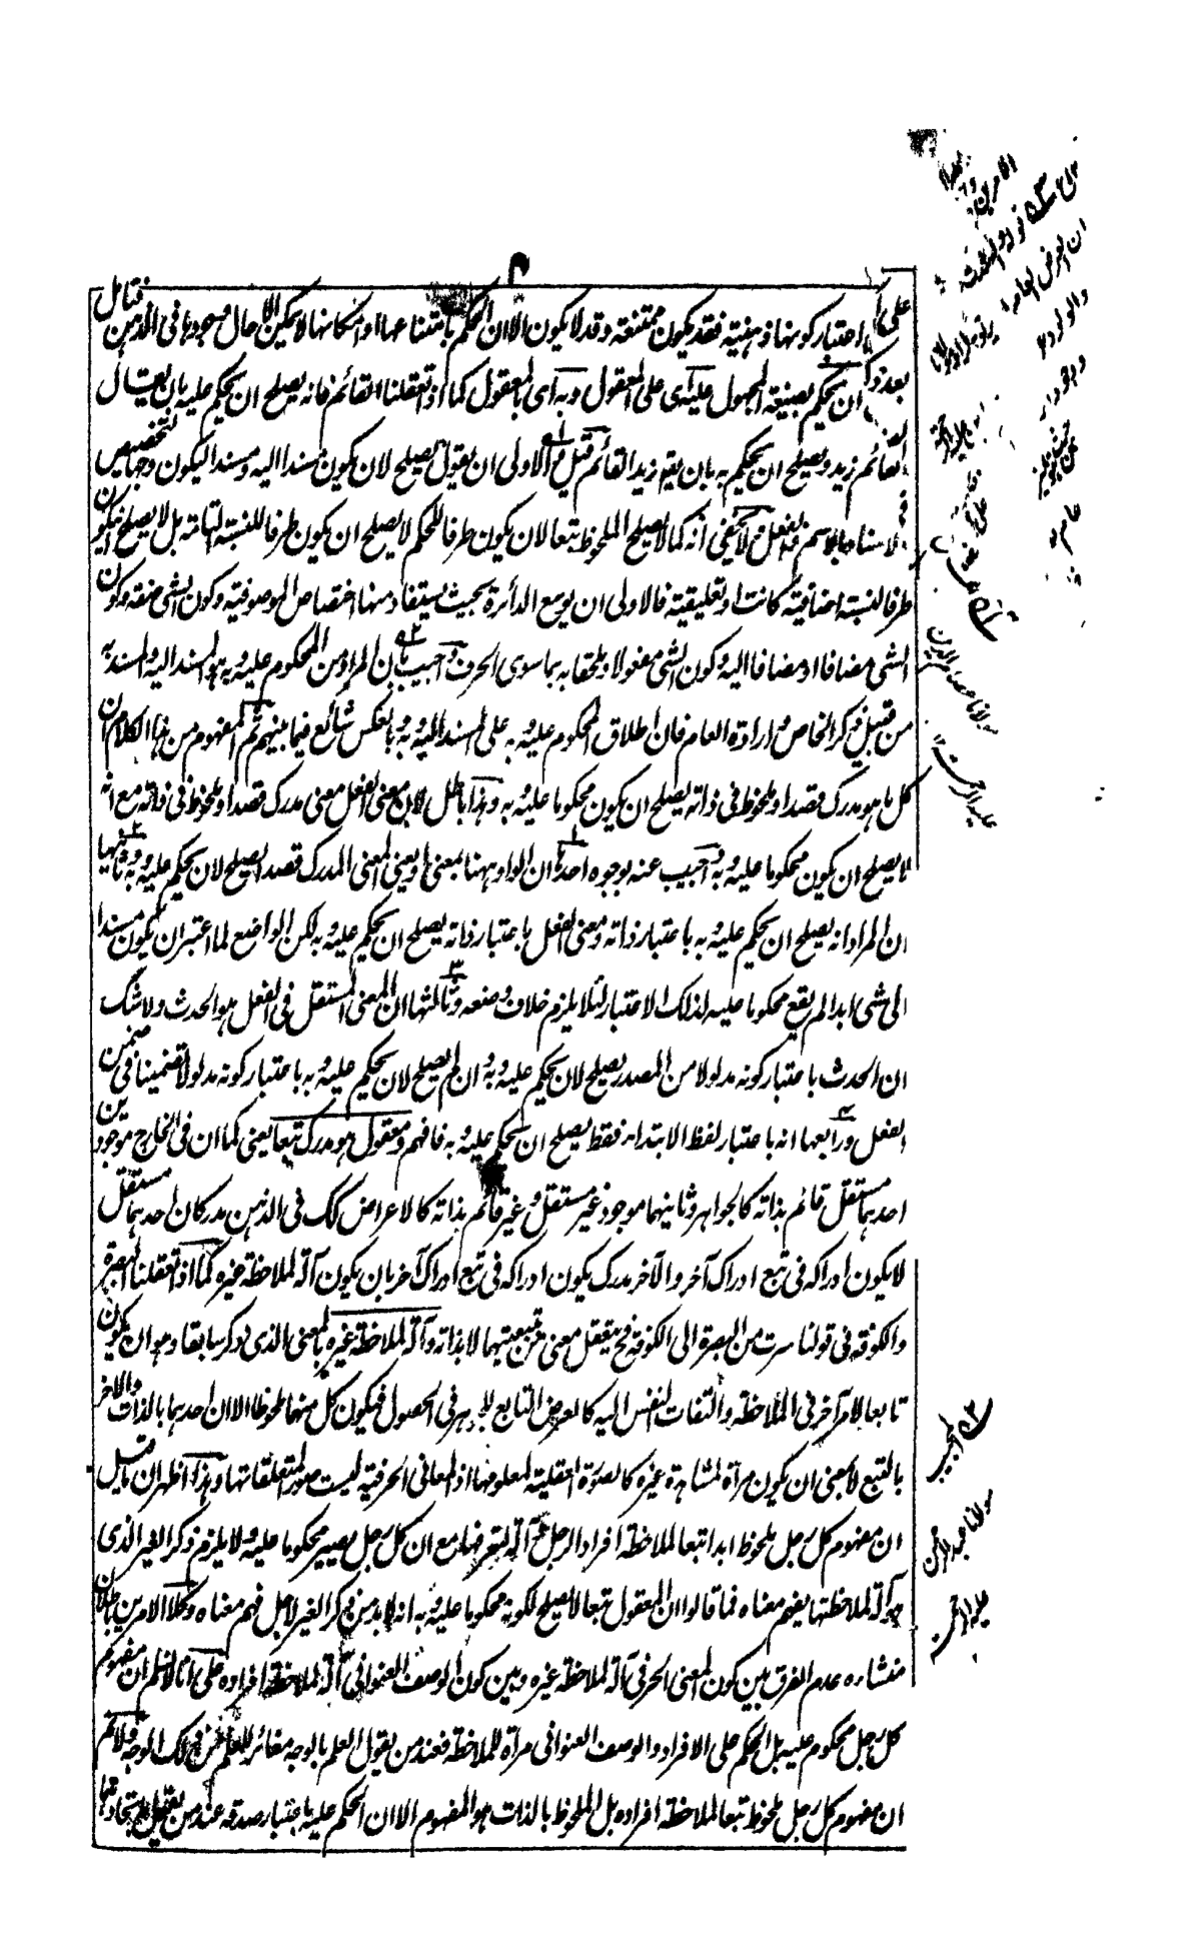 على اعتبار كونها ذهنية فقد يكون ممتنعة وقد لا يكون الا ان الحكم بامتناعها او امكانها لا يمكن الا حال وجودها فى الذهن فتامل
بعد ان يحكم بصيغة المجهول عليه اى على المعقول وبه اى بالمعقول كما اذا تعقلنا القائم فانه يصلح ان يحكم عليه بان يقال
القائم زيد ويصلح ان يحكم به بان يقم زيد القائم قيل الاولى ان يقول يصلح لان يكون مسندا اليه ومسندا ليكون وجها لتخصيص
الاسناد بالاسم والفعل ولا يخفى انه كما لا يصلح الملحوظ تبعا لان يكون طرفا للحكم لا يصلح ان يكون طرفا للنسبة التامة بل لا يصلح ان يكون
طرفا لنسبة اضافية كانت او تعليقية فالاولى ان يوسع الدائرة بحيث يستفاد منها اختصاص الموصوفية وكون الشى صفة وكون
الشى مضافا او مضافا اليه وكون الشى مفعولا وملحقا به بما سوى الحرف واجيب بان المراد من المحكوم عليه وبه هو المسند اليه والمسند به
من قبيل ذكر الخاص وارادة العام فان اطلاق المحكوم عليه وبه على المسند اليه وبه وبالعكس شائع فيما بينهم ثم المفهوم من هذا الكلام ان
كل ما هو مدرك قصدا وملحوظ فى ذاته يصلح ان يكون محكوما عليه وبه وهذا باطل لان معنى الفعل معنى مدرك قصدا وملحوظ فى ذاته مع انه
لا يصلح ان يكون محكوما عليه وبه واجيب عنه بوجوه احدها ان الواو ههنا بمعنى او يعنى المعنى المدرك قصدا يصلح لان يحكم عليه وبه وثانيها
ان المراد انه يصلح ان يحكم عليه وبه باعتبار ذاته ومعنى الفعل باعتبار ذاته يصلح ان يحكم عليه وبه لكن الواضع لما اعتبر ان يكون مسندا
الى شى ابدا لم يقع محكوما عليه لذلك الاعتبار لئلا يلزم خلاف وضعه وثالثها ان المعنى المستقل فى الفعل هو الحدث ولا شك
ان الحدث باعتبار كونه مدلولا من المصدر يصلح لان يحكم عليه وبه وان لم يصلح لان يحكم عليه وبه باعتبار كونه مدلولا تضمنيا فى ضمن
الفعل ورابعها انه باعتبار لفظ الابتداء فقط يصلح ان يحكم عليه وبه فافهم ومعقول هو مدرك تبعا يعنى كما ان فى الخارج موجودين
احدهما مستقل قائم بذاته كالجواهر وثانيهما موجود غير مستقل وغير قائم بذاته كالاعراض كك فى الذهن مدركان احدهما مستقل
لا يكون ادراكه فى تبع ادراك آخر والآخر مدرك يكون ادراكه فى تبع ادراك آخر بان يكون آلة لملاحظة غيره كما اذا تعقلنا البصرة
والكوفة فى قولنا سرت من البصرة الى الكوفة فح يتعقل معنى من بتبعيتهما لا بذاته وآلة لملاحظة غيره بالمعنى الذى ذكر سابقا وهو ان يكون
تابعا لامر آخر فى الملاحظة والتفات النفس اليه كالعرض التابع للجوهر فى الحصول فيكون كل منهما ملحوظا الا ان احدهما بالذات والاخر
بالتبع لا بمعنى ان يكون مرآة لمشاهدة غيره كالصورة العقلية لمعلومها اذ المعانى الحرفية ليست صور المتعلقاتها وبهذا ظهر ان ما قيل
ان مفهوم كل رجل ملحوظ ابدا تبعا لملاحظة افراد الرجل وآلة لتعرفها مع ان كل رجل يصير محكوما عليه ولا يلزم ذكر الغير الذى
هو آلة لملاحظتها ليفهم معناه فما قالوا ان المعقول تبعا لا يصلح لكونه محكوما عليه وبه انه لا بد من ذكر الغير لاجل فهم معناه وكلا الامرين باطلان
منشاره عدم الفرق بين كون المعنى الحرفى آلة لملاحظة غيره وبين كون الوصف العنوانى آلة لملاحظة افراده على انا لا نسلم ان مفهوم
كل رجل محكوم عليه بل الحكم على الافراد والوصف العنوانى مرآة للملاحظة فعند من يقول العلم بالوجه مغائر للعلم من ذلك الوجه ولا نم
ان مفهوم كل رجل ملحوظ تبعا لملاحظة افراده بل الملحوظ بالذات هو المفهوم الا ان الحكم عليه باعتبار صدقه عند من يقول باتحادهما
المجيب
مولانا عبد الرحمن
عليه الرحمة